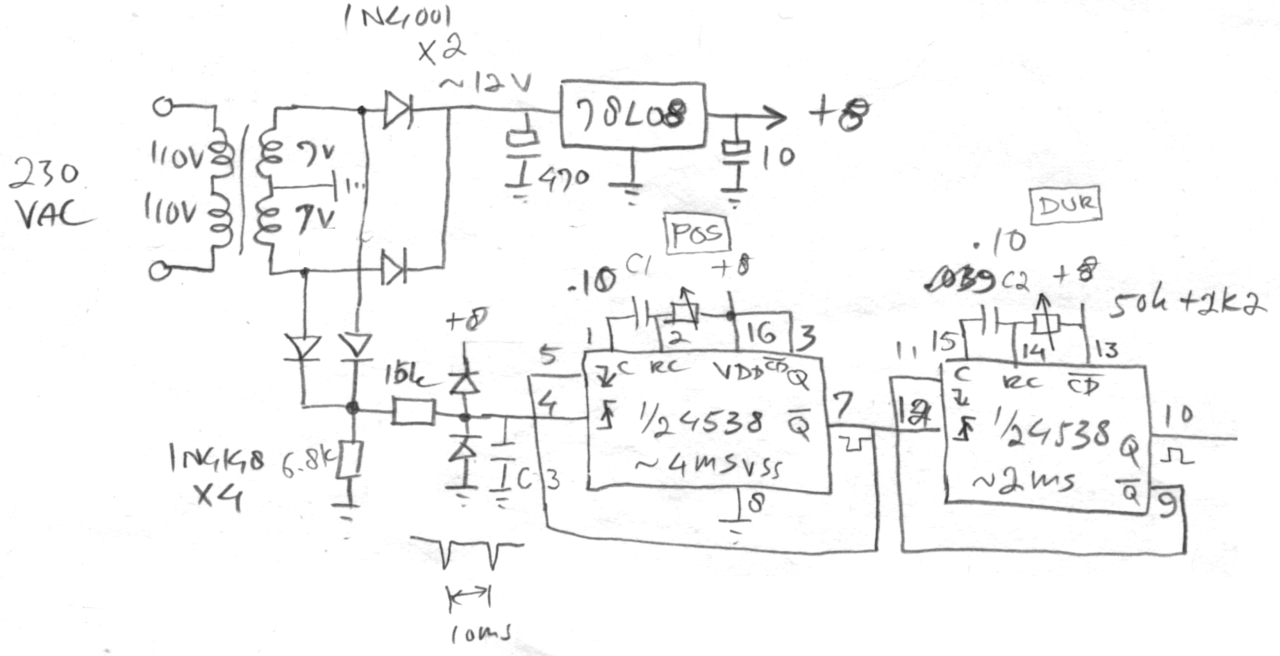 1N4001
X2
~12V
78L08
+8
230
VAC
110V
110V
7V
7V
470
10
POS
DUR
.10
C1
+8
.10
.039
C2
+8
50k+2k2
1
2
16
3
5
4
C
RC
VDD
CD
Q
1/2 4538
Q
~4ms
VSS
7
8
15
14
13
11
12
C
RC
CD
1/2 4538
Q
~2ms
Q
10
9
+8
15k
1N4148
X4
6.8k
C3
10ms